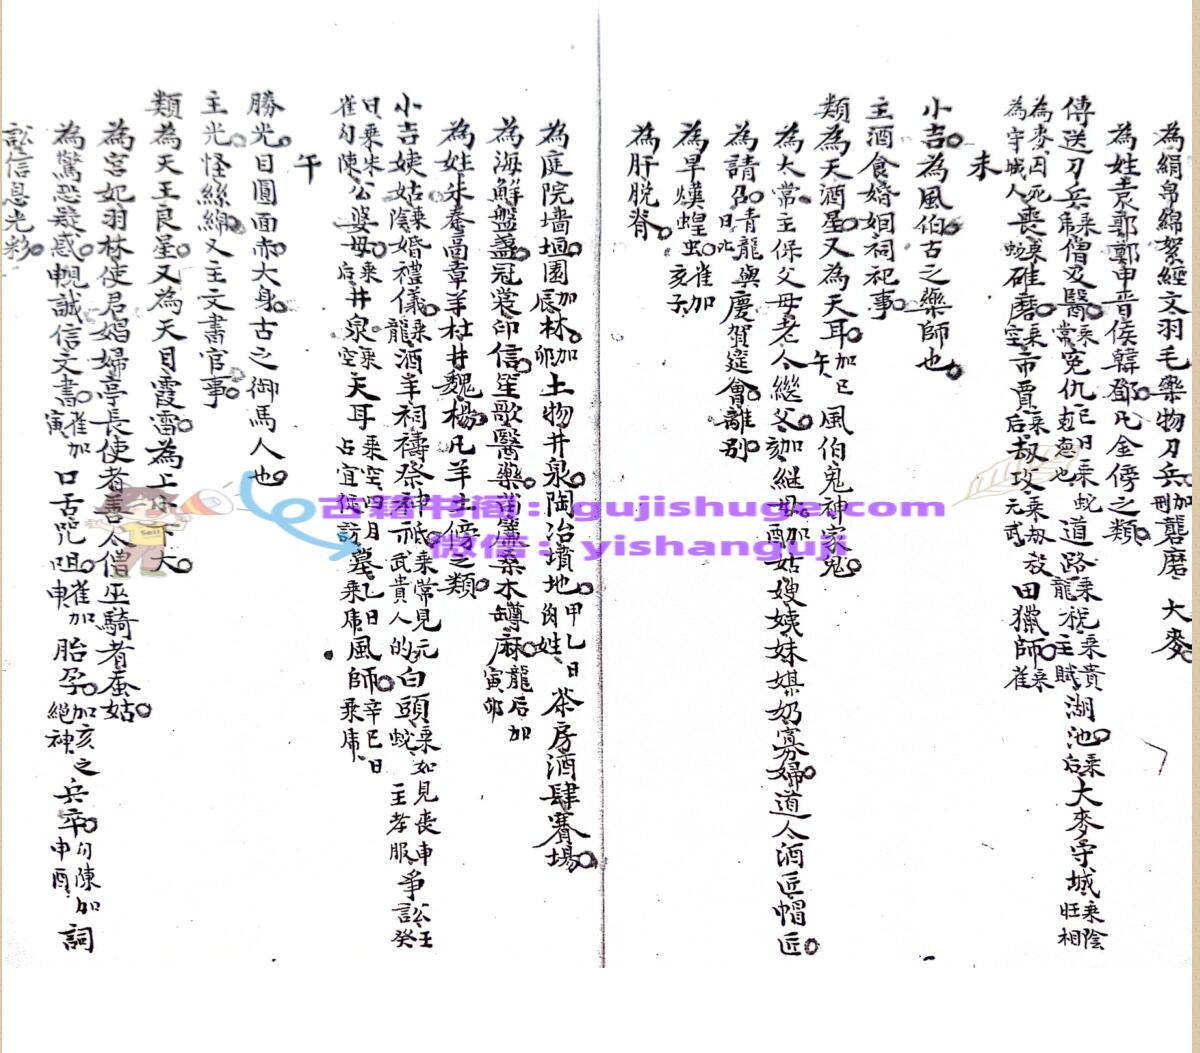 為絹帛綿絮經文羽毛藥物刀兵加刑礱磨大麥
為姓袁郭鄭申晋侯韓鄧凡金傍之類
傳送刀兵乘虎僧及醫乘常冤仇巳日乘蛇道路乘龍稅乘貴主賦湖池乘后大麥守城乘陰旺相
為麥囚死為守城人喪乘蛇碓磨乘空市賈乘后劫攻乘元武田獵師乘雀
未
小吉為風伯古之藥師也
主酒食婚姻祠祀事
類為天酒星又為天耳加巳午風伯鬼神家鬼
為太常主保父母老人繼父加亥繼母加酉姑嫂姨妹媒奶寡婦道人酒匠帽匠
為請召青龍與慶賀筵會離别日比
為旱熯蝗虫雀加亥子
為肝脱脊
為庭院墙垣園加辰林加卯土物井泉陶冶墳地甲乙日茶房酒肆賽場
為海鮮盤盞冠裳印信笙歌醫藥簾桑木罇麻龍后加寅卯
為姓朱秦高章羊杜井魏楊凡羊土傍之類
小吉姨姑乘陰婚禮儀乘龍酒羊祠禱祭神祇乘常見元武貴人的白頭乘蛇如見喪車主孝服爭訟壬癸
日乘朱雀勾陳公婆母乘后井泉乘空天耳乘空四月占宜從訪墓乙日乘虎風師辛巳日乘虎
午
勝光目圓面赤大身古之御馬人也
主光怪絲綿又主文書官事
類為天王良星又為天目霞雷為上下大
為宫妃羽林使君娼婦亭長使者善人僧巫騎者蚕姑
為驚恐疑惑幌誠信文書雀加寅口舌咒咀雀加申胎孕加亥之絕神兵卒勾陳加申酉詞
訟信息光彩
古籍书阁：gujishuge.com
微信：yishanguji